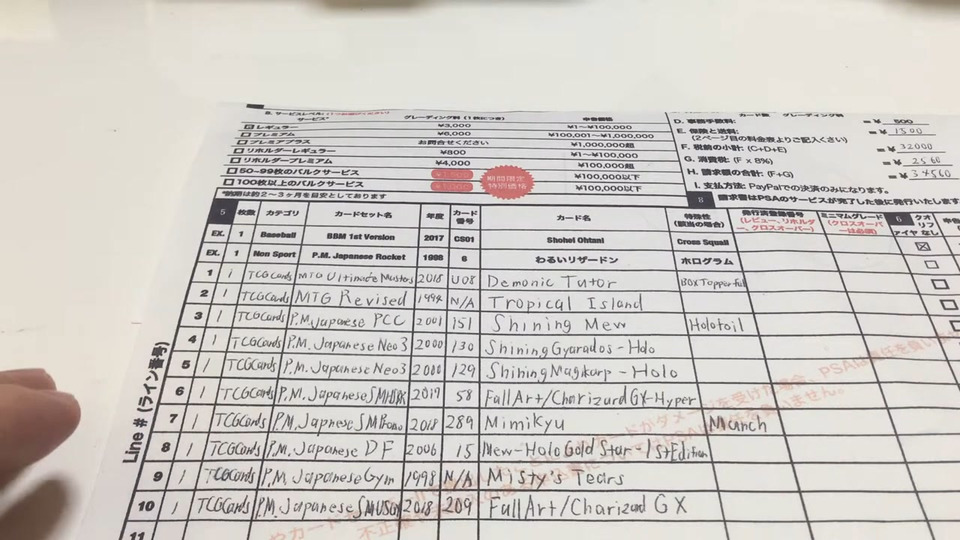 B. サービスレベル:
サービス* グレーディング料 (1枚につき) 申告価格
レギュラー ¥3,000 ¥1〜¥100,000
プレミアム ¥6,000 ¥100,001〜¥1,000,000
プレミアプラス お問合せください ¥1,000,000超
リホルダーレギュラー ¥800 ¥1〜¥100,000
リホルダープレミアム ¥4,000 ¥100,000超
50-99枚のバルクサービス ¥100,000以下
100枚以上のバルクサービス ¥100,000以下
期間限定
特別価格
*納期は約2〜3ヶ月を目安としております
D. 事務手数料: =¥ 500
E. 保険と送料: =¥ 1500
(2ページ目の料金表よりご記入ください)
F. 税前の小計: (C+D+E) =¥ 32000
G. 消費税: (F x 8%) =¥ 2560
H. 請求額の合計: (F+G) =¥ 34560
I. 支払方法: PayPalでの決済のみになります。
8 請求書はPSAのサービスが完了した後に発行いたします
5 枚数 カテゴリ カードセット名 年度 カード番号 カード名 特殊性 (該当の場合) 発行済登録番号 (レビュー、リホルダー、クロスオーバー) ミニマムグレード (クロスオーバーは必須) 6 クオリファイヤ なし
EX. 1 Baseball BBM 1st Version 2017 CS01 Shohei Ohtani Cross Squall
EX. 1 Non Sport P.M. Japanese Rocket 1998 6 わるいリザードン ホログラム
1 1 TCGCards MTG Ultimate Masters 2018 U08 Demonic Tutor Box Topper-foil
2 1 TCGCards MTG Revised 1994 N/A Tropical Island
3 1 TCGCards P.M. Japanese PCC 2001 151 Shining Mew Holofoil
4 1 TCGCards P.M. Japanese Neo3 2000 130 Shining Gyarados-Holo
5 1 TCGCards P.M. Japanese Neo3 2000 129 Shining Magikarp-Holo
6 1 TCGCards P.M. Japanese 2019 58 FullArt/Charizard GX-Hyper
7 1 TCGCards P.M. Japnese SMPromo 2018 289 Mimikyu Munch
8 1 TCGCards P.M. Japanese DF 2006 15 Mew-Holo Gold Star-1stEdition
9 1 TCGCards P.M. Japanese Gym 1998 N/A Misty's Tears
10 1 TCGCards P.M. Japanese 2018 209 FullArt/Charizard GX
11
Line # (ライン番号)